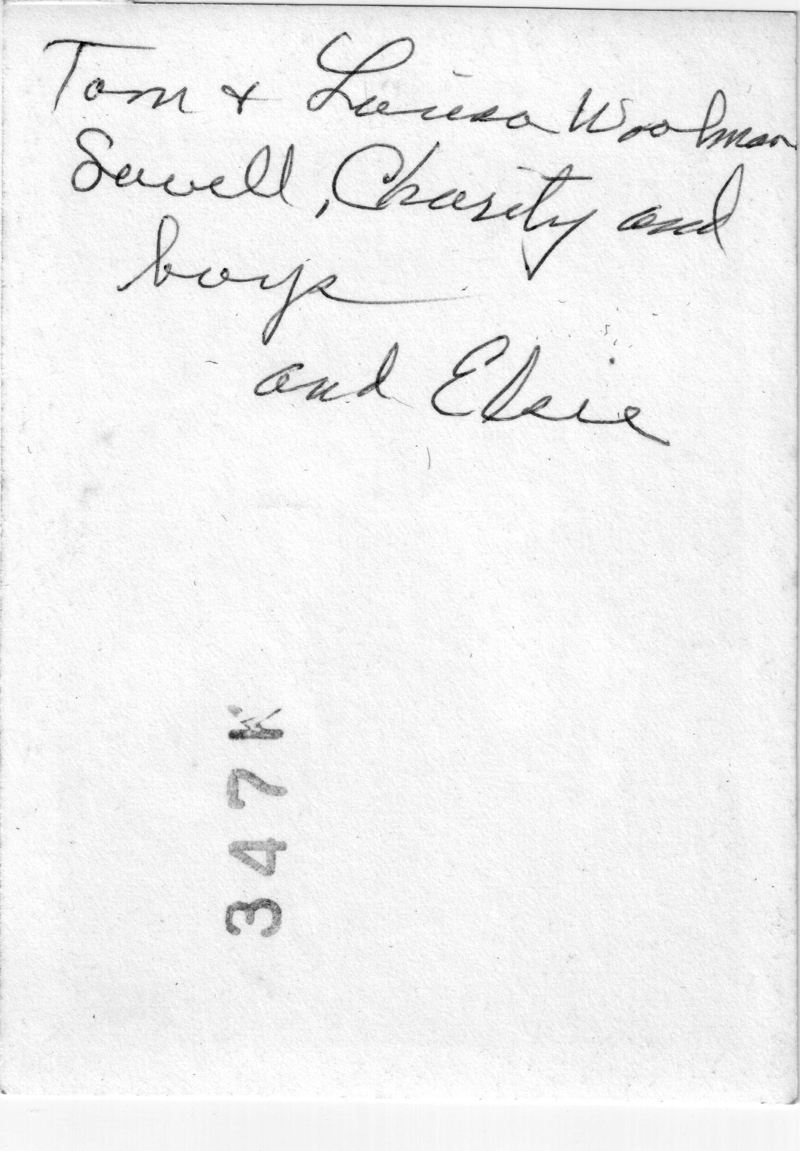 Tom & Louisa Woolman
Sowell, Charity and
boys
and Elsie
347K